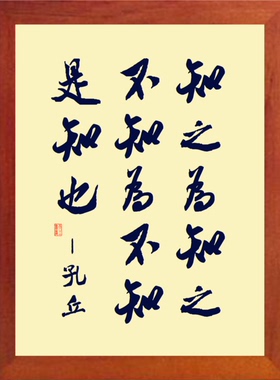 知之為知之
不知為不知
是知也
－孔丘